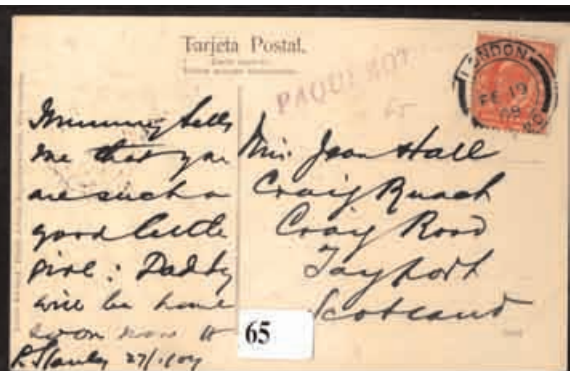 Tarjeta Postal.
PAQUEBOT
LONDON
FE 19
08
65
Mummy tells
me that you
are such a
good little
girl: Daddy
will be home
soon now
Miss Jean Hall
Craig Ruach
Craig Road
Tayport
Scotland
65